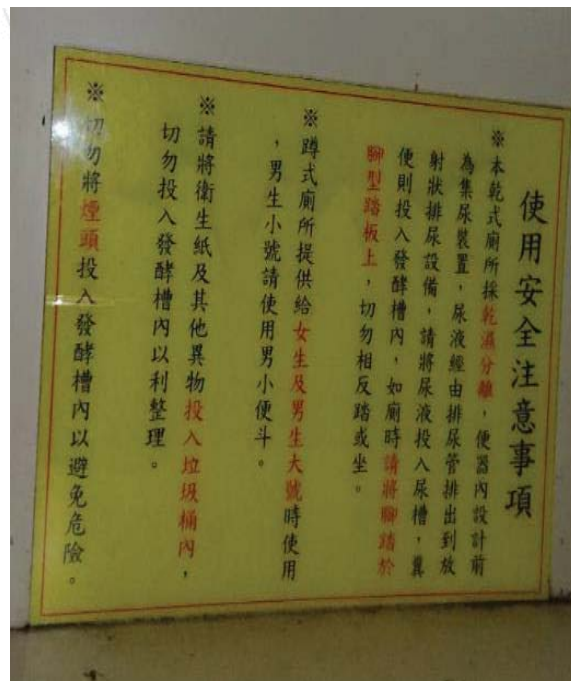 使用安全注意事項
※本乾式廁所採乾濕分離，便器內設計前
為集尿裝置，尿液經由排尿管排出到放
射狀排尿設備，請將尿液投入尿槽，糞
便則投入發酵槽內，如廁時請將腳踏於
腳型踏板上，切勿相反踏或坐。
※蹲式廁所提供給女生及男生大號時使用
，男生小號請使用男小便斗。
※請將衛生紙及其他異物投入垃圾桶內，
切勿投入發酵槽內以利整理。
※切勿將煙頭投入發酵槽內以避免危險。